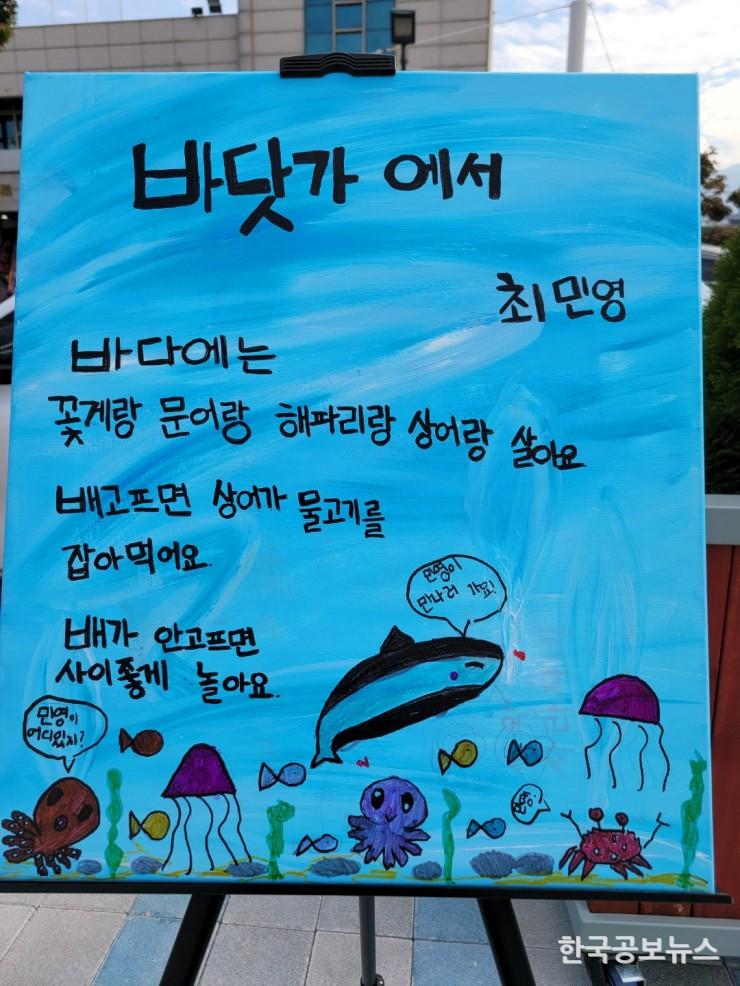 바닷가 에서
최민영
바다에는
꽃게랑 문어랑 해파리랑 상어랑 살아요
배고프면 상어가 물고기를
잡아먹어요.
배가 안고프면
사이좋게 놀아요.
민영이
만나러 가요!
민영이
어디있지?
한국공보뉴스